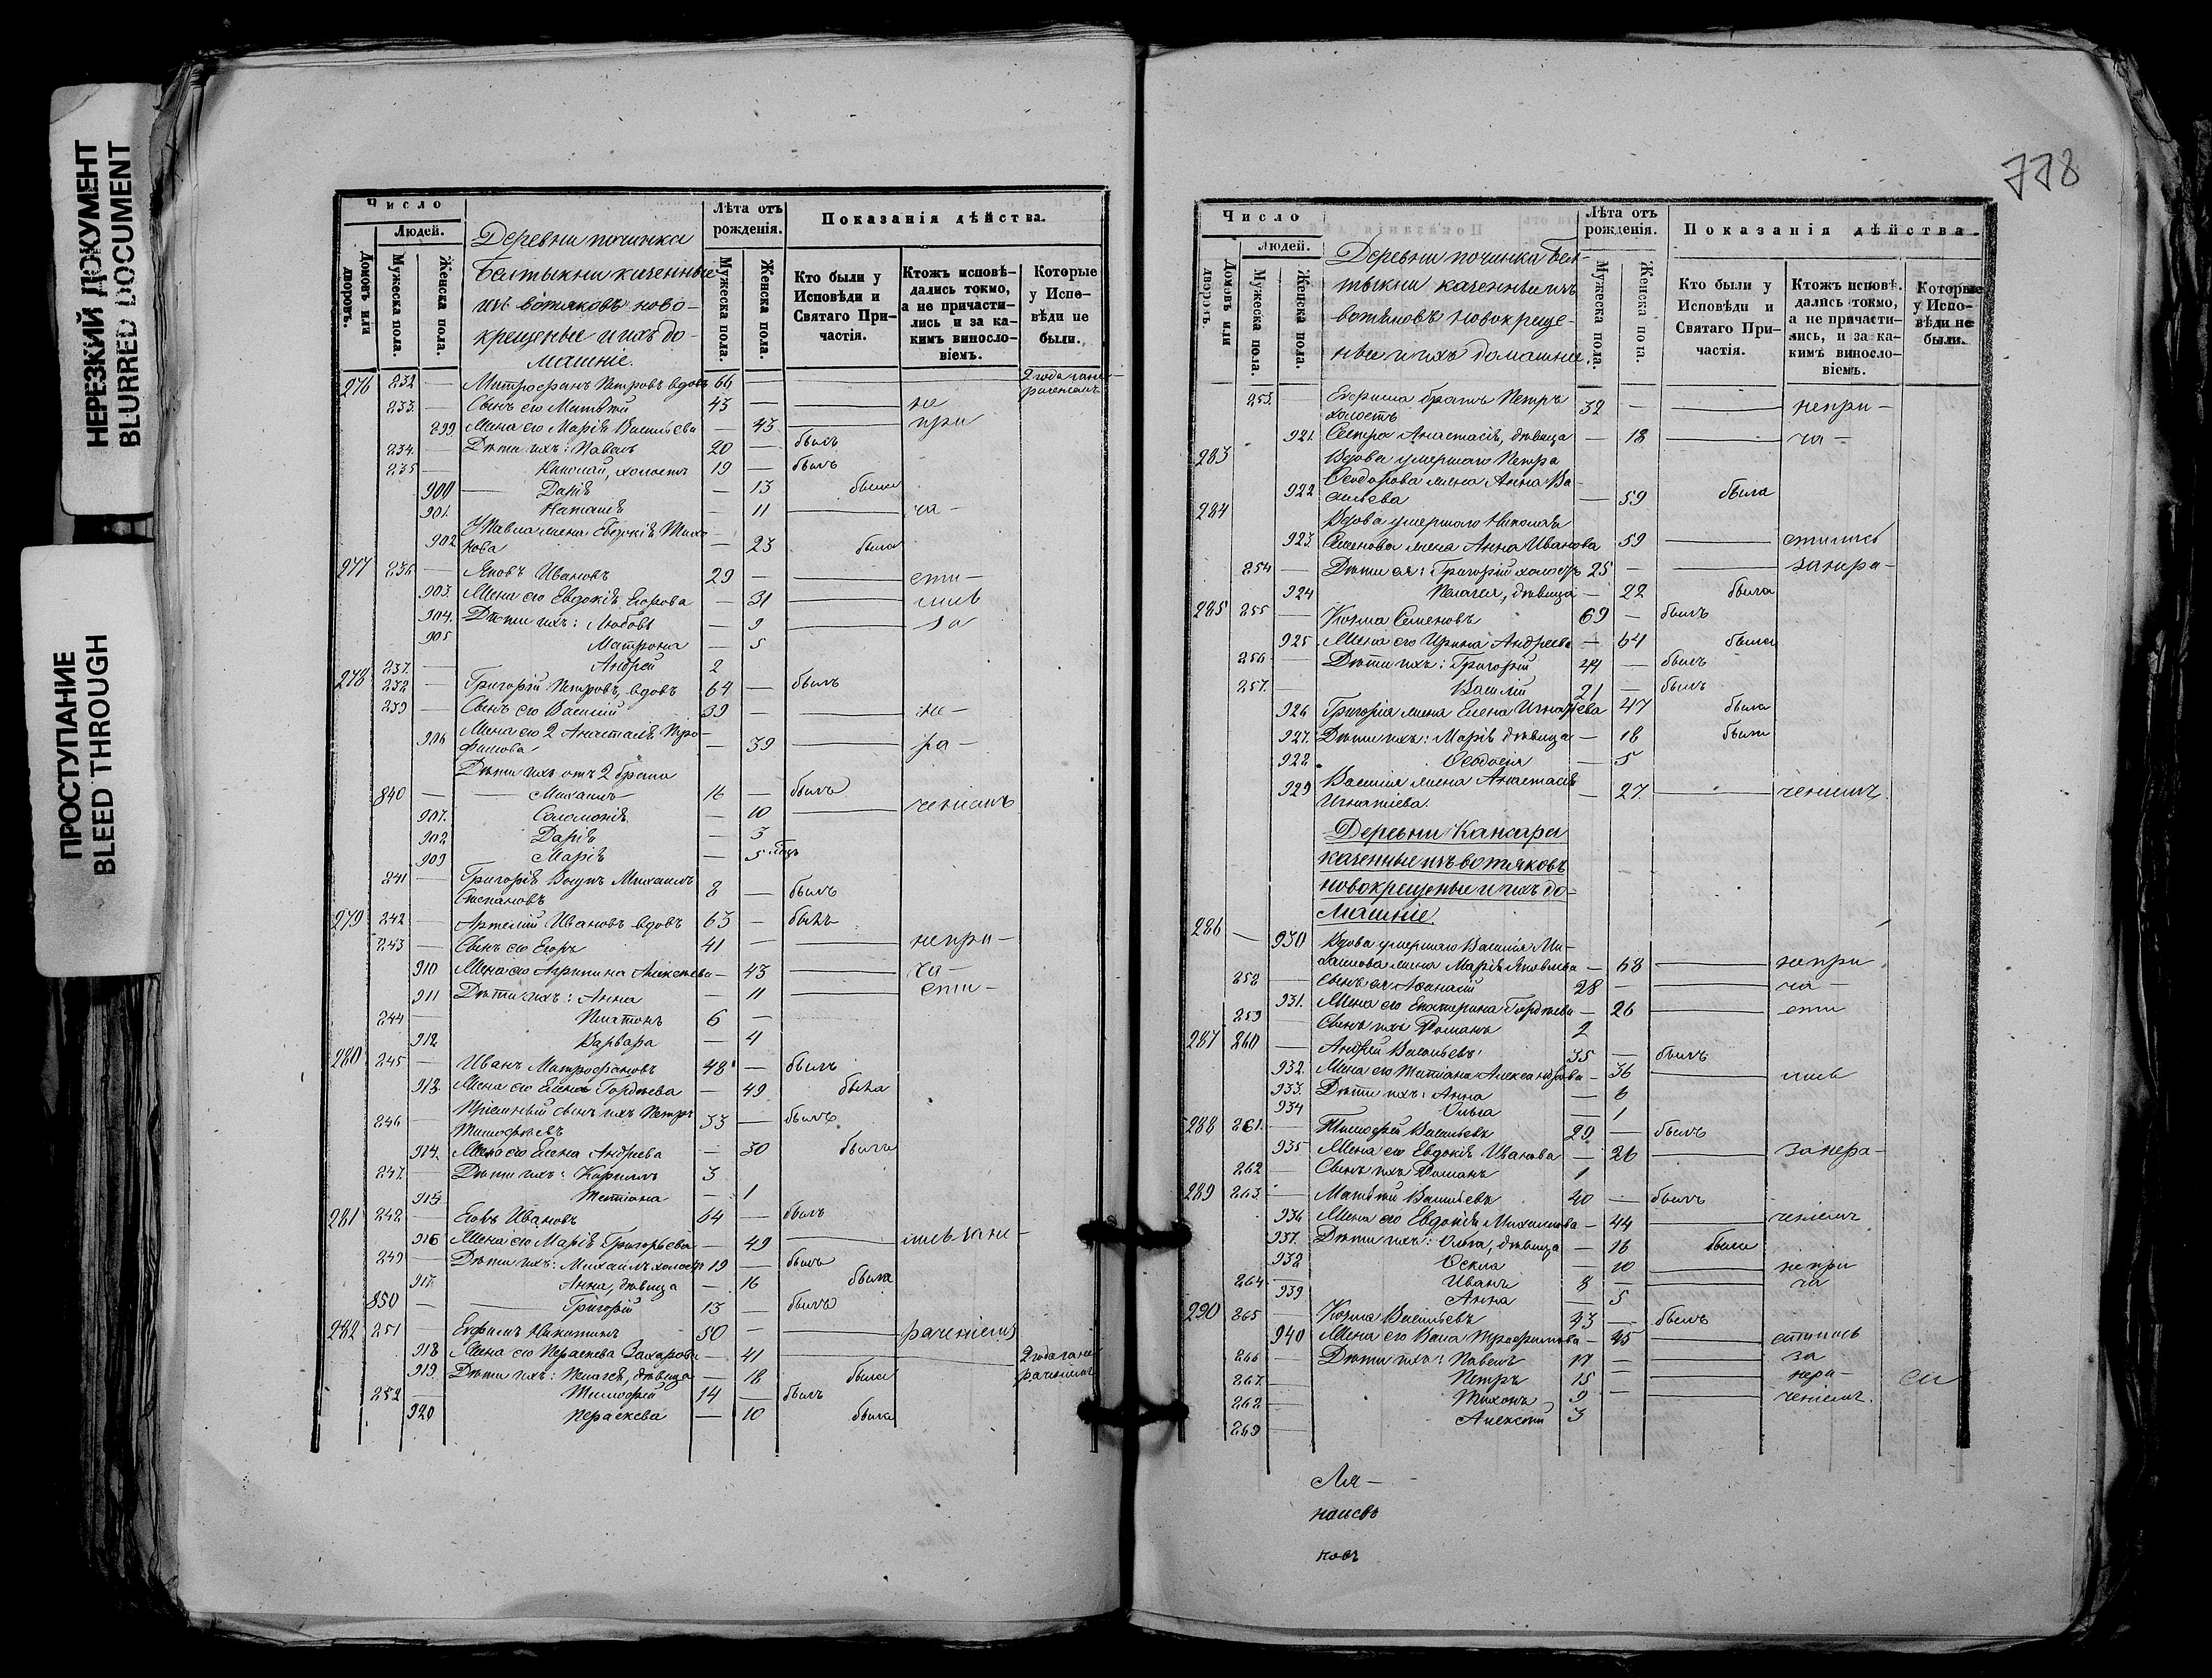 НЕРЕЗКИЙ ДОКУМЕНТ
BLURRED DOCUMENT
ПРОСТУПАНИЕ
BLEED THROUGH
Число
Людей.
Домовъ или дворовъ.
Мужеска пола.
Женска пола.
Деревни починка
казенные
изъ вотяковъ ново-
крещеные и ихъ до-
машніе.
Лѣта отъ рожденія.
Мужеска пола.
Женска пола.
Показанія дѣйства.
Кто были у Исповѣди и Святаго Причастія.
Ктожъ исповѣдались токмо, а не причастились и за какимъ винословіемъ.
Которые у Исповѣди не были.
276 232 — Митрофанъ Петровъ вдовъ 66 — 2 года за не-
раченіемъ
233. — Сынъ его Матвѣй 43 — — не
899 Жена его Марія Васильева — 43 — при
234. — Дѣти ихъ: Павелъ 20 — былъ
235 — Николай, холостъ 19 — былъ
900 — Дарія — 13 была
901. Наталія — 11 — ча-
902 У Павла жена Евдокія Тихо-
нова — 23 была
277 236 — Яковъ Ивановъ 29 — — сти-
903. Жена его Евдокія Егорова — 31 — лись
904. Дѣти ихъ: Любовь — 9 — за
905 Матрона — 5
237. — Андрей 2
278 238 — Григорій Петровъ, вдовъ 64 — былъ
239 — Сынъ его Василій 39 — — не-
906 Жена его 2 Анастасія Тро-
фимова — 39 — ра-
Дѣти ихъ отъ 2 брака
840 — — Михаилъ — 16 — былъ
907. Соломонія — 10 — ченіемъ
908 Дарія — 3
909 Марія — 5 мѣсц
241 — Григорія внукъ Михаилъ
Степановъ 8 — былъ
279 242 — Артемій Ивановъ вдовъ 63 — былъ
243 — Сынъ его Егоръ 41 — — непри-
910 Жена его Агрипина Алексѣева — 43 — ча-
911 Дѣти ихъ: Анна — 11 — сти-
244 — Платонъ 6 —
912 Варвара — 4
280 245 — Иванъ Митрофановъ 48 — былъ
913 Жена его Елена Гордѣева — 49 была
246 — Пріемный сынъ ихъ Петръ
Тимофѣевъ 33 — былъ
914. Жена его Елена Андреева — 30 была
247. — Дѣти ихъ: Кириллъ 3
915 Татіана — 1
281 248 — Іовъ Ивановъ 64 — былъ
916 Жена его Марія Григорьева — 49 — лись за не-
249 — Дѣти ихъ: Михаилъ холостъ 19 — былъ
917. Анна, дѣвица — 16 была
850 — — Григорій 13 — былъ
282 251 — Ефремъ Никитинъ 50 — — раченіемъ
918 Жена его Параскева Захарова — 41 — 2 года за не-
919. Дѣти ихъ: Пелагія, дѣвица — 18 была раченіемъ
252 — Тимофей 14 — былъ
920 Параскева — 10 была
778
Число
Людей.
Домовъ или дворовъ.
Мужеска пола.
Женска пола.
Деревни починка
казенные изъ
вотяковъ новокреще-
ные и ихъ домашніе.
Лѣта отъ рожденія.
Мужеска пола.
Женска пола.
Показанія дѣйства.
Кто были у Исповѣди и Святаго Причастія.
Ктожъ исповѣдались токмо, а не причастились, и за какимъ винословіемъ.
Которые у Исповѣди не были.
253. — Ефрема братъ Петръ
холостъ 32 — — непри-
921. Сестра Анастасія, дѣвица — 18 — ча-
283 Вдова умершаго Петра
922 Ѳеодорова жена Анна Ва-
сильева — 59 была
284 Вдова умершаго Николая
923. Семенова жена Анна Иванова 59 — стились
254 — Дѣти ея: Григорій холостъ 25 — — за нера-
924 Пелагея, дѣвица — 22 была
285 255 — Козма Семеновъ 69 — былъ
925 Жена его Ирина Андреева — 64 была
256 — Дѣти ихъ: Григорій 44 — былъ
257. — Василій 21 — былъ
926 Григорія жена Елена Игнатіева 47 была
927. Дѣти ихъ: Марія дѣвица — 18 была
928 Ѳеодосія — 5
929 Василія жена Анастасія
Игнатіева — 27. — ченіемъ.
Деревни
казенные изъ вотяковъ
новокрещеные и ихъ до-
машніе.
286 — 930 Вдова умершаго Василія Ми-
хайлова жена Марія Яковлева — 68 — непри
258 — Сынъ ея Аѳанасій 28 — — ча-
931. Жена его Екатерина Гордѣева — 26 — сти
259 Сынъ ихъ Романъ 2
287 260 — Андрей Васильевъ 35 — былъ
932. Жена его Татіана Александрова — 36 — лись
933. Дѣти ихъ: Анна — 6
934 Ольга — 1
288 261. — Тимофей Васильевъ 29 — былъ
935 Жена его Евдокія Иванова — 26 — за нера-
262 — Сынъ ихъ Романъ 1
289 263. — Матвѣй Васильевъ 40 — былъ
936 Жена его Евдокія Михайлова — 44 — ченіемъ
937. Дѣти ихъ: Ольга, дѣвица — 16 была
938 Ѳекла — 10 — непри
264 — Иванъ 8 — — ча
939 Анна — 5
290 265 — Козма Васильевъ 43 — былъ
940 Жена его Васса Трофимова — 45 — стились
266 — Дѣти ихъ: Павелъ 17 — — за
267. Петръ 15 — — нера-
268 — Тихонъ 9 — — ченіемъ.
269 — Алексѣй 3